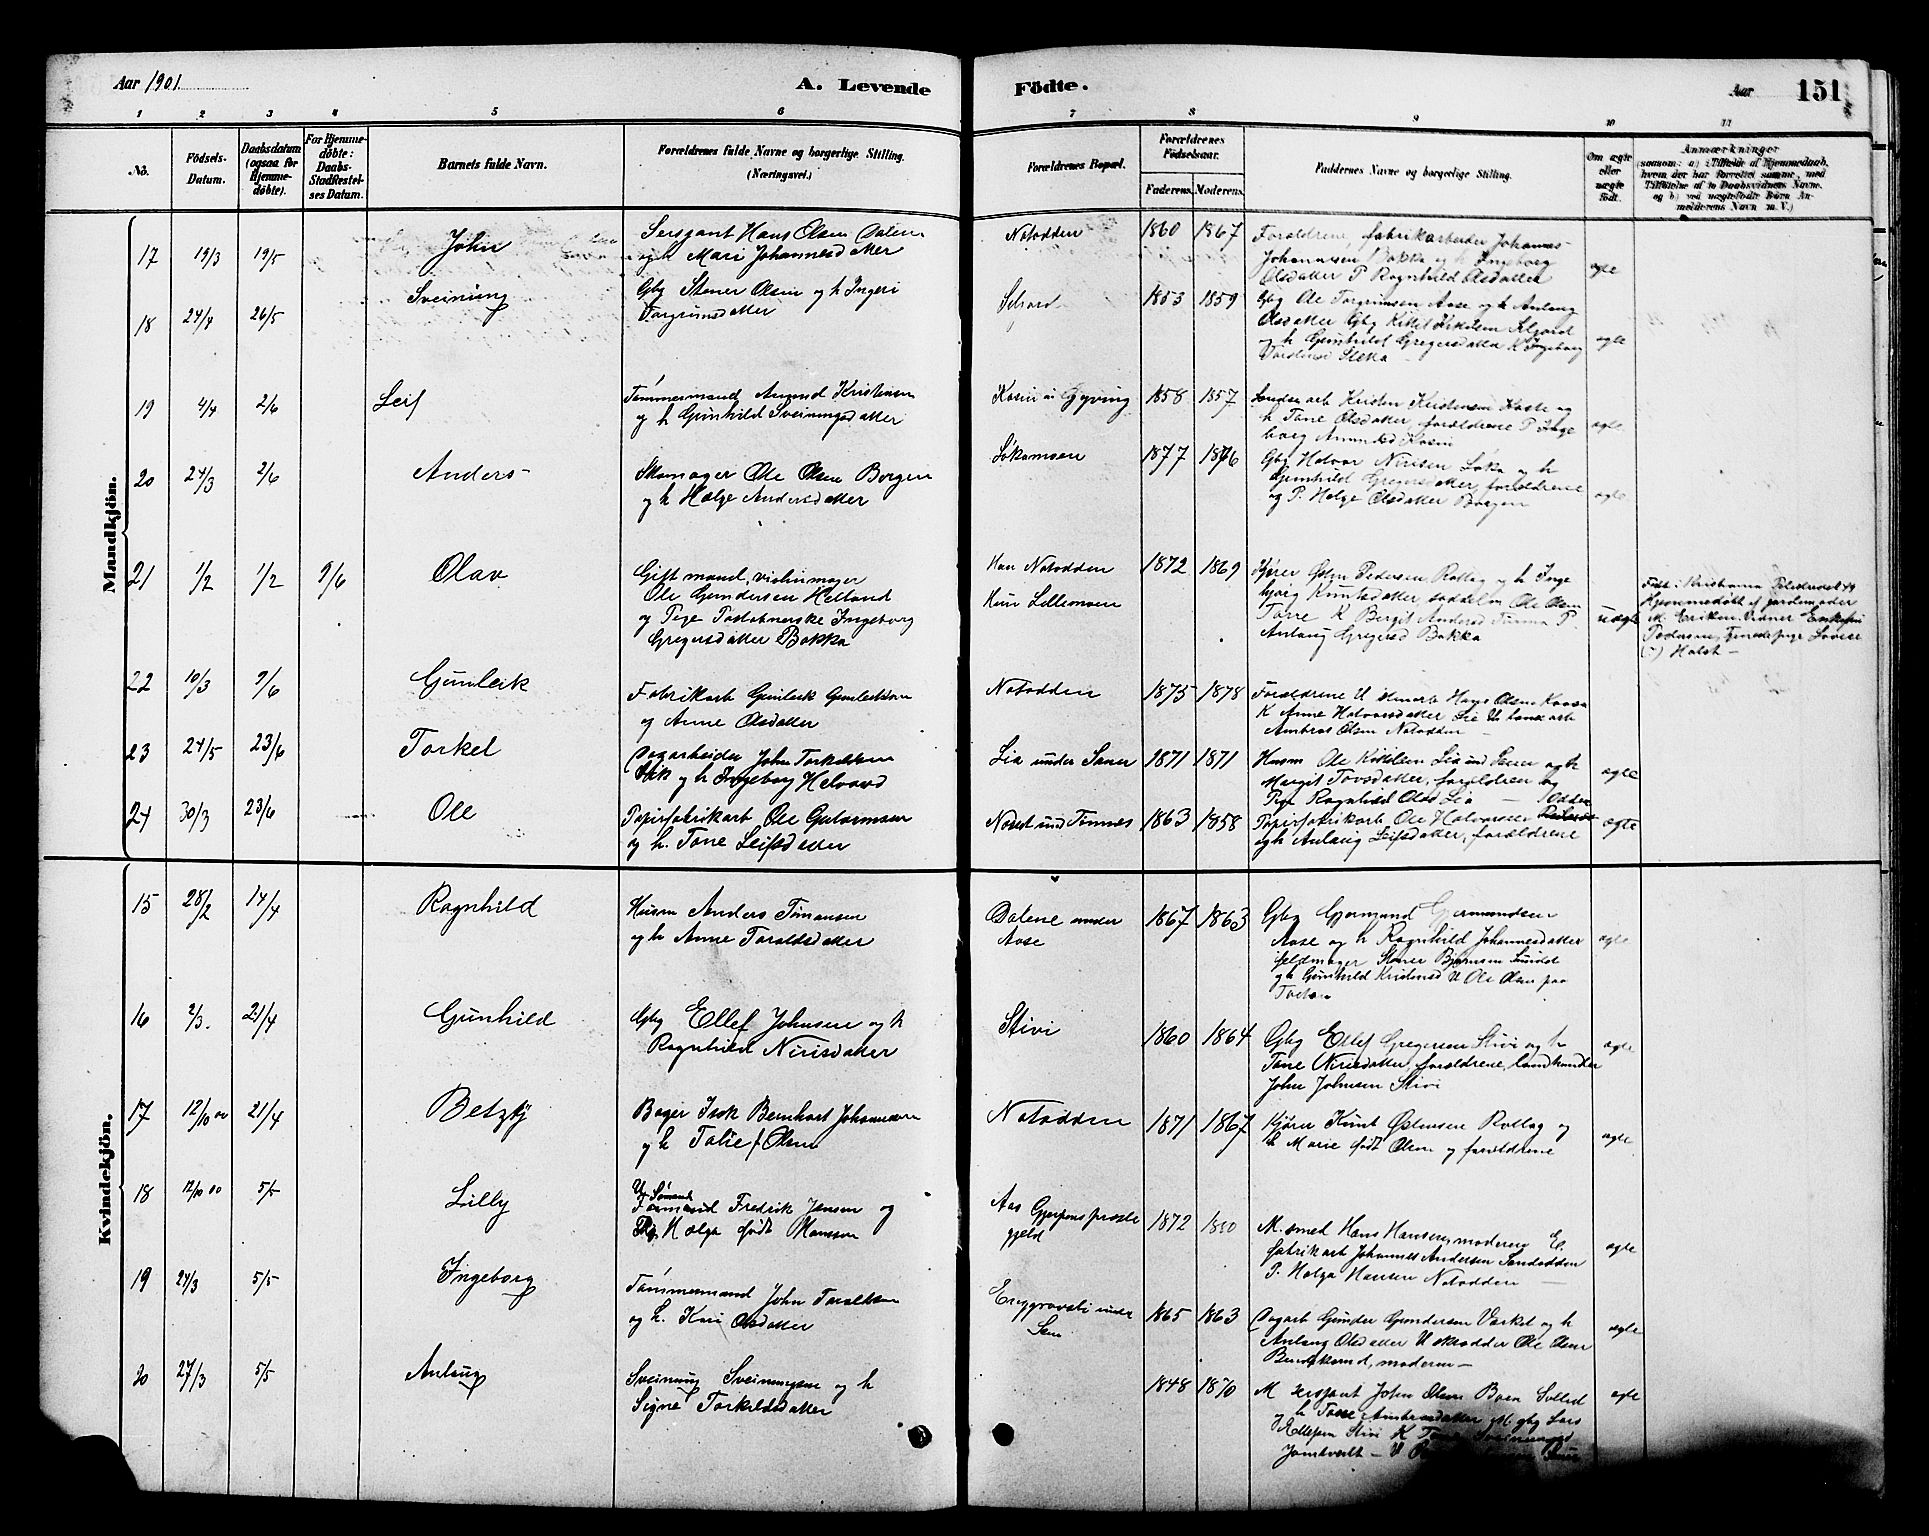 Aar 1901
A. Levende
Födte.
Aar
151
1 2 3 4 5 6 7 8 9 10 11
No.
Födsels-
Datum.
Daabsdatum
(ogsaa for
Hjemme-
døbte).
For Hjemme-
døbte:
Daabs-
Stadfæstel-
ses Datum.
Barnets fulde Navn.
Forældrenes fulde Navne og borgerlige Stilling.
(Næringsvei.)
Forældrenes Bopæl.
Forældrenes
Födselsaar.
Faderens. Moderens.
Faddernes Navne og borgerlige Stilling.
Om ægte
eller
uægte
födt.
Anmærkninger
saasom: a) i Tilfælde af Hjemmedaab,
hvem der har forrettet samme, med
Tilföielse af to Daabsvidners Navne,
og b) ved uægtefødte Börn An-
melderens Navn m. V.)
Mandkjön.
17 19/3 19/5 John
Sersgant Hans Olsen Dalen
og h Mari Johannesdatter
Notodden 1860 1867
Forældrene, fabrikarbeider Johannes
Johannesen Bakka og h Ingeborg
Olsdatter P Ragnhild Olsdatter
ægte
18 24/4 26/5 Sveinung
Gbg Stener Olsen og h Ingeri
Torgrimsdatter
1853 1859
Gbg Ole Torgrimsen Aase og h Anlaug
Olsdatter Gbg Kittil
og h Gunhild Gregersdatter K Ingeborg
ægte
19 4/4 2/6 Leif
Tømmermand Amund Kristensen
og h Gunhild Sveinungsdatter
Kasin u Gyving 1858 1857
Kristen Kristensen Kaste og
h Tone Olsdatter, forældrene P Inge
borg Amundsd Kasin
ægte
20 24/3 2/6 Anders
Skomager Ole Olsen Borgen
og h Helge Andersdatter
Løkamoen 1877 1876
Gbg Halvor Nirisen Løka og h
Gunhild Gregersdatter, forældrene
og P. Helge Olsdatter Borgen
ægte
21 1/2 1/2 9/6 Olav
Gift mand, violinmager
Ole Gundersen Helland
og Pige Postaabnerske Ingeborg
Gregersdatter Bakka
Han Notodden
Hun Lillemoen
1872 1869
Kjører Østen Pedersen Rollag og h Inge
bjørg Knutsdatter, saddelm Ole Olsen
Torre K Bergit Andersd Tinna P
Anlaug Gregersd Bakka
uægte
Født i Kristiania
Hjemmedøbt af jordemoder
M. Eriksen. Vidner
Pedersen, Tjenestepige Lovise
Holst
22 10/3 9/6 Gunleik
Fabrikarb Gunleik Gunleiksen
og Anne Olsdatter
Notodden 1875 1878
Forældrene U Hans Olsen Kaasa
K Anne Halvorsdatter Lia U
Ambros Olsen Notodden
23 24/5 23/6 Torkel
Dagarbeider John Torkelsen
og h Ingeborg Helvard
Lia under Sauer 1871 1871
Husm Ole Kittilsen Lia und Sauer og h
Margit Tovsdatter, forældrene og
Pige Ragnhild Olsd Lia
ægte
24 30/3 23/6 Ole
Papirfabrikarb Ole Gutormsen
og h. Tone Leifsdatter
Næset und Tinnæs 1863 1858
Papirfabrikarb Ole Halvorsen
og h Anlaug Leifsdatter, forældrene
ægte
Kvindekjön.
15 28/2 14/4 Ragnhild
Husm Anders Tómassen
og h Anne Taraldsdatter
Dalene under
Aase
1867 1863
Gbg Gjermund Gjermundsen
Aase og h Ragnhild Johannesdatter
Stener Bjørnsen
og h Gunhild Kristensd U Ole Olsen paa
ægte
16 2/3. 21/4 Gunhild
Gbg Ellef Johnsen og h
Ragnhild Nirisdatter
Stivi 1860 1864
Gbg Ellef Gregersen Stivi og h
Tone Nirisdatter, forældrene, landhandler
John Johnsen Stivi
ægte
17 12/10 00 21/4 Betzy
Bager Isak Bernhart Johannesen
og h Talie f Olsen
Notodden 1871 1867
Kjører Knut Østensen Rollag og
h Marie født Olsen og forældrene
ægte
18 12/10 00 5/5 Lilly
Sømand
Fredrik Jensen og
Helga født Hansen
Aas Gjerpens præste
gjeld
1872 1880
M. smed Hans Hansen, moderen E.
fabrikarb Johannes Andersen Sandodden
P. Helga Hansen Notodden
ægte
19 24/3 5/5 Ingeborg
Tømmermand John Taraldsen
og h. Kari Olsdatter
under
Sem
1865 1863
Dagarb Gunder Gundersen Værket og h
Anlaug Olsdatter U skrædder Ole Olsen
moderen
ægte
20 27/3 5/5 Anlaug
Sveinung Sveinungsen og h
Signe Torkildsdatter
1848 1870
M sersjant John Olsen Boen
h Tone Ambrosdatter M gbg Lars
Ellefsen Stivi K Tone Sveinungsd
ægte